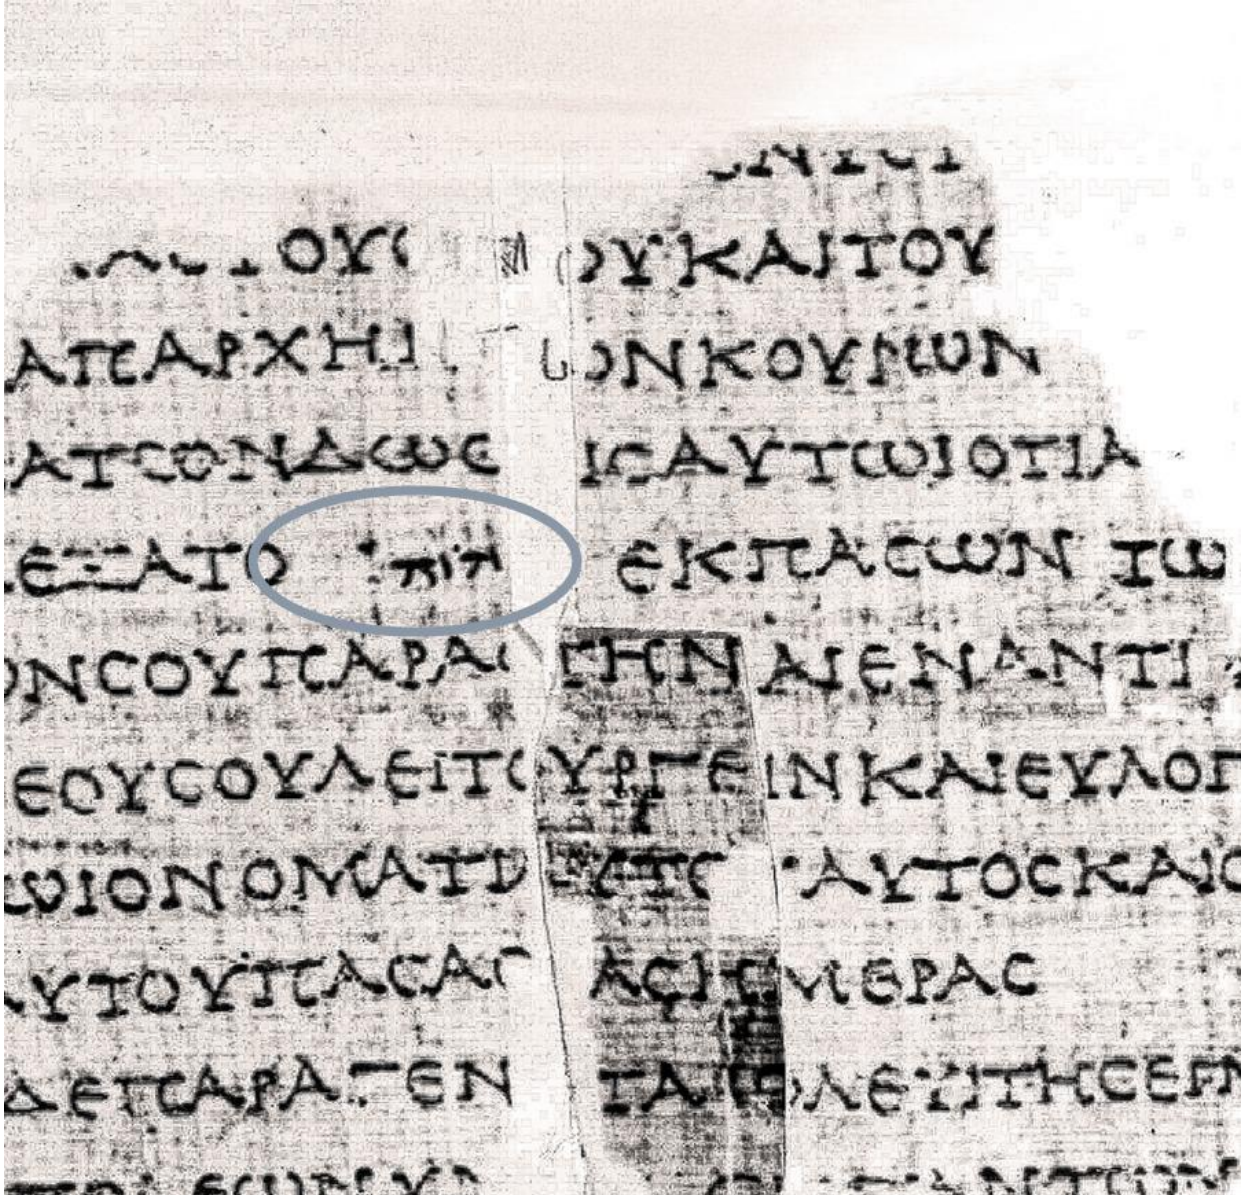 ΟΥ ΟΥΚΑΙΤΟΥ
ΑΠΑΡΧΗ ΩΝΚΟΥΡΩΝ
ΑΤΩΝΔΩϹΕ ΙϹΑΥΤΩΙΟΤΙΑ
ΕΞΑΤΟ יהוה ΕΚΠΑϹΩΝ ΤΩ
ΩΝϹΟΥΠΑΡΑϹΤΗΝΑΙΕΝΑΝΤΙ
ΕΟΥϹΟΥΛΕΙΤΟΥΡΓΕΙΝΚΑΙΕΥΛΟΓ
ΩΙΟΝΟΜΑΤΙ ΑΥΤΟΥ ΑΥΤΟϹΚΑΙΟ
ΥΤΟΥΠΑϹΑϹ ΑϹΗΜΕΡΑϹ
ΔΕΠΑΡΑΓΕΝ ΤΑΙΟΛΕΥΙΤΗϹΕΓΜ